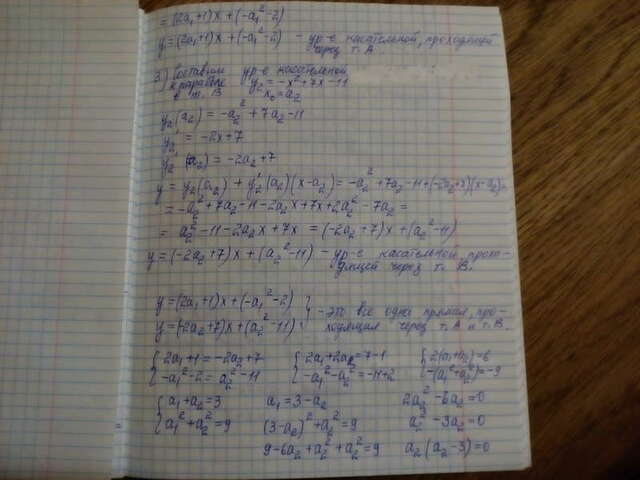 = (2a₁+1)x + (-a₁²-2)
y = (2a₁+1)x + (-a₁²-2) - ур-е касательной, проходящей
через т. А
3) Составим ур-е касательной
к параболе y₂ = -x²+7x-11
в т. В x₀ = a₂
y₂(a₂) = -a₂² + 7a₂ - 11
y₂' = -2x+7
y₂'(a₂) = -2a₂+7
y = y₂(a₂) + y₂'(a₂)(x-a₂) = -a₂²+7a₂-11+(-2a₂+7)(x-a₂)=
= -a₂²+7a₂-11-2a₂x+7x+2a₂²-7a₂ =
= a₂²-11-2a₂x+7x = (-2a₂+7)x+(a₂²-11)
y = (-2a₂+7)x + (a₂²-11) - ур-е касательной, прохо-
дящей через т. В.
y = (2a₁+1)x + (-a₁²-2)
y = (-2a₂+7)x + (a₂²-11) } - это все одна прямая, про-
ходящая через т. А и т. В.
{ 2a₁+1 = -2a₂+7 { 2a₁+2a₂ = 7-1 { 2(a₁+a₂) = 6
{ -a₁²-2 = a₂²-11 { -a₁²-a₂² = -11+2 { -(a₁²+a₂²) = -9
{ a₁+a₂ = 3 a₁ = 3-a₂ 2a₂²-6a₂ = 0
{ a₁²+a₂² = 9 (3-a₂)²+a₂² = 9 a₂²-3a₂ = 0
9-6a₂+a₂²+a₂² = 9 a₂(a₂-3) = 0